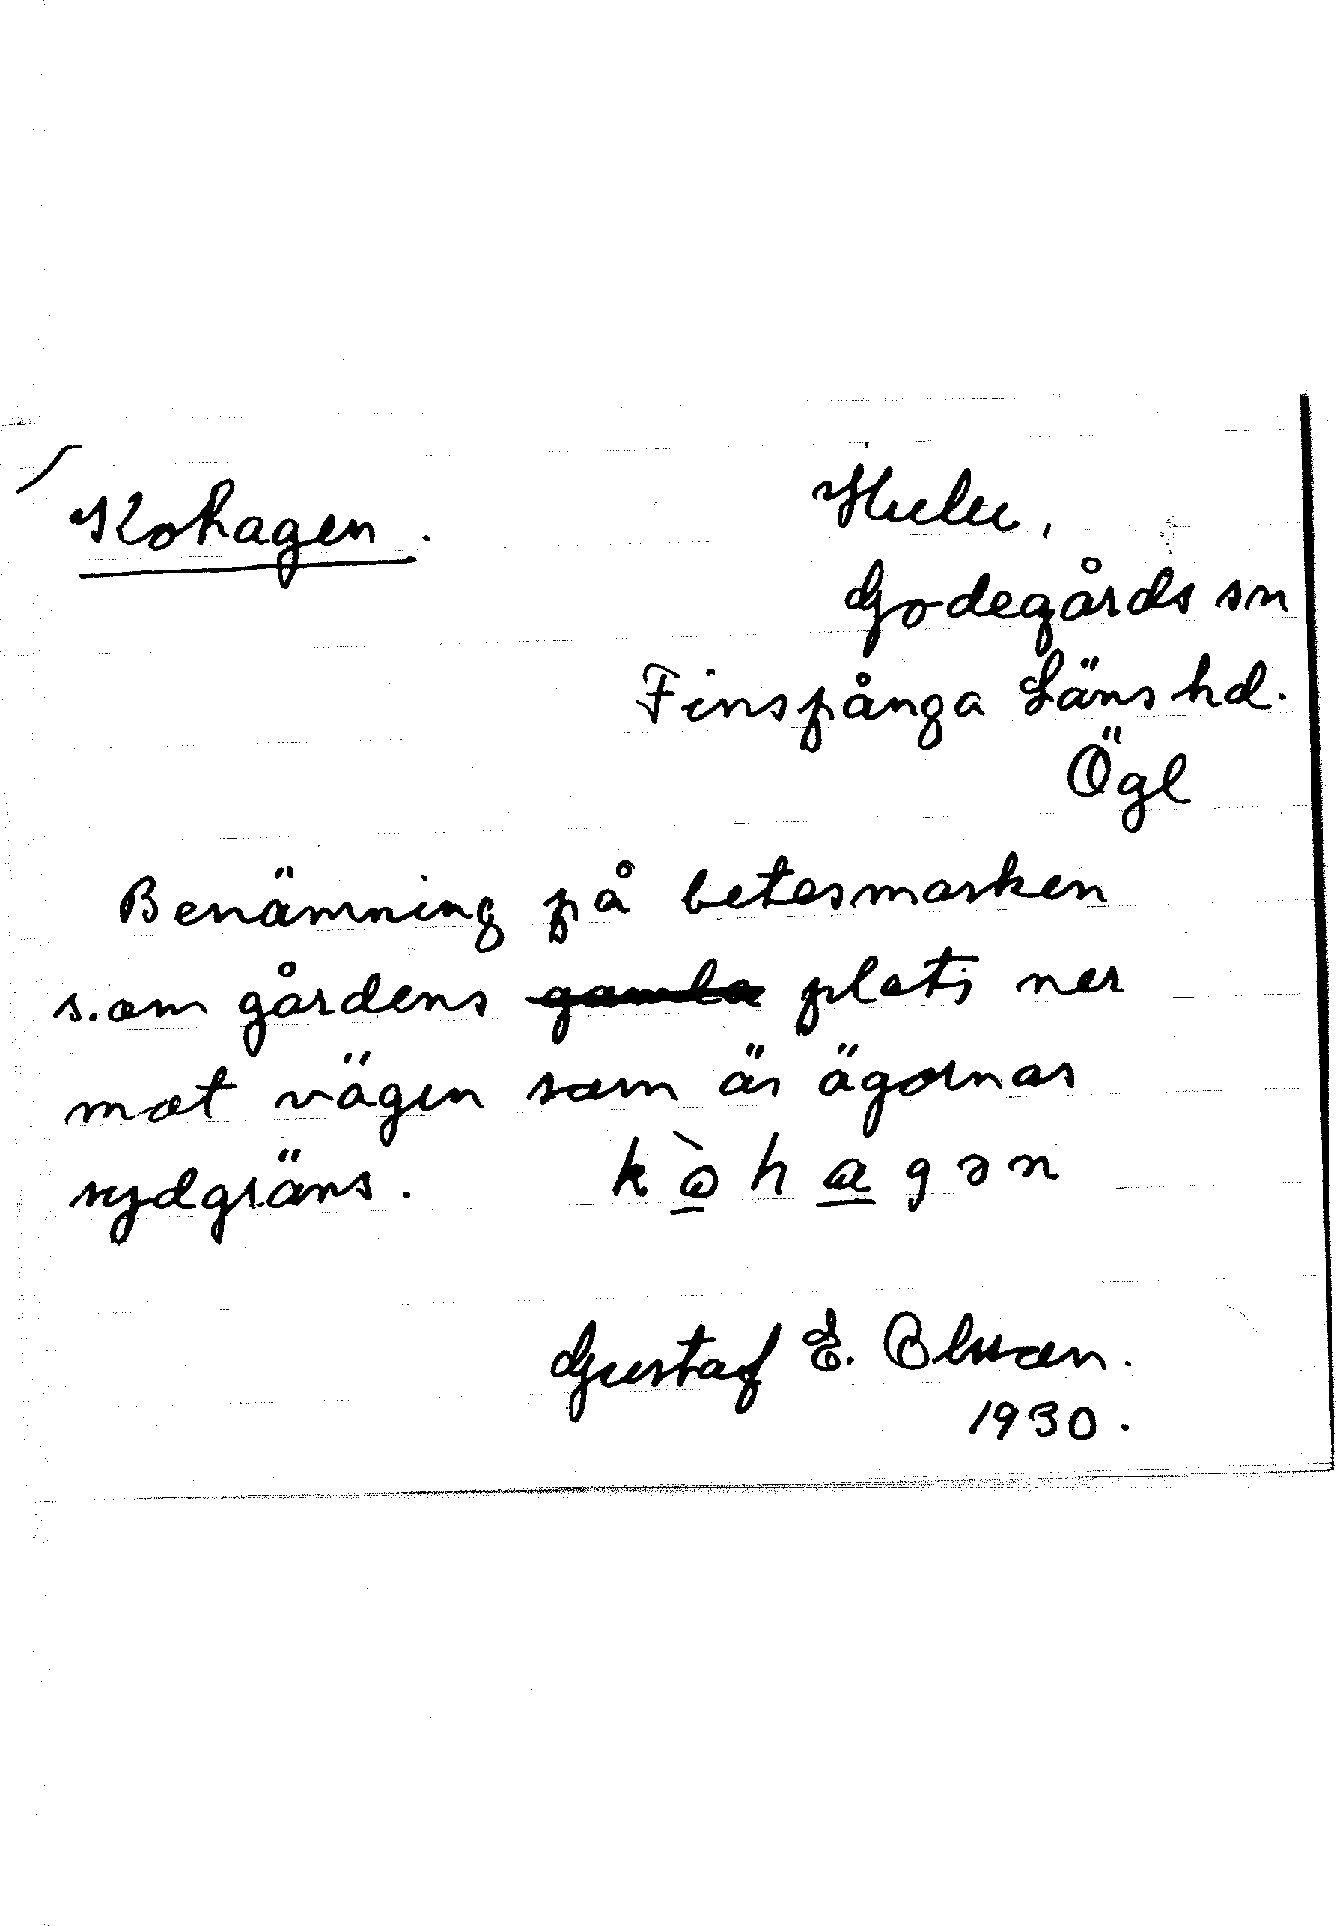 Kohagen.
Hulu,
Godegårds sn
Finspånga Läns hd.
Ögl
Benämning på betesmarken
s.om gårdens gamla plats ner
mot vägen som är ägornas
sydgräns. kòhagən
Gustaf E. Olsson.
1930.